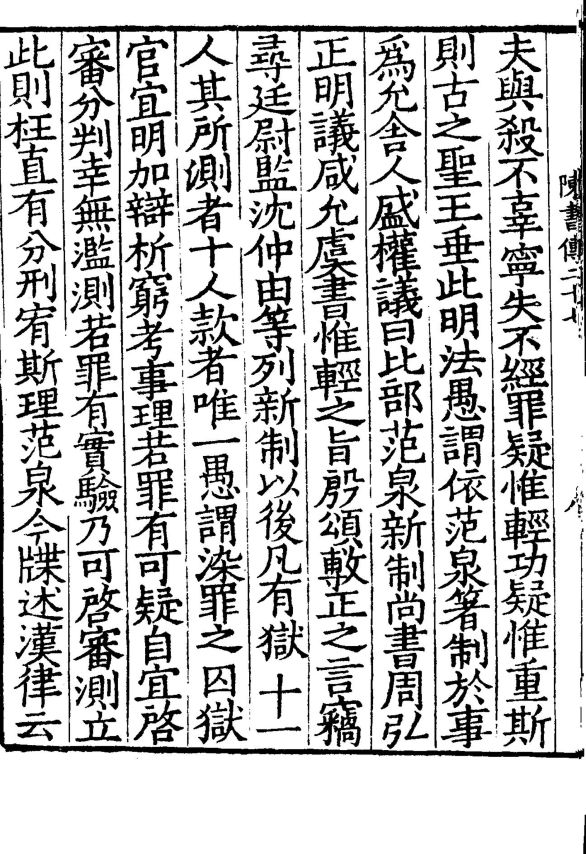 陳書傳二十七
夫與殺不辜寧失不經罪疑惟輕功疑惟重斯
則古之聖王垂此明法愚謂依范泉箸制於事
爲允舍人盛權議曰比部范泉新制尚書周弘
正明議咸允虞書惟輕之旨殷頌敷正之言竊
尋廷尉監沈仲由等列新制以後凡有獄十一
人其所測者十人款者唯一愚謂染罪之囚獄
官宜明加辯析窮考事理若罪有可疑自宜啓
審分判幸無濫測若罪有實驗乃可啓審測立
此則枉直有分刑宥斯理范泉今牒述漢律云